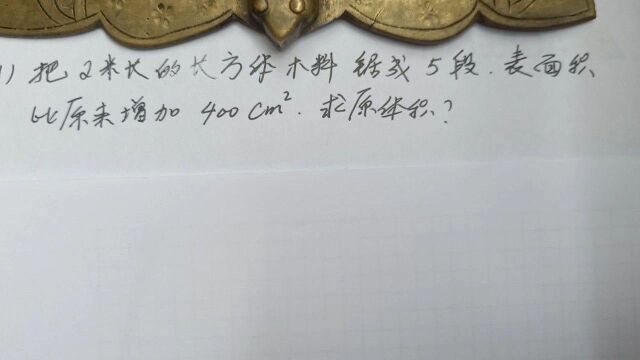 1) 把2米长的长方体木料锯成5段.表面积
比原来增加 400 cm². 求原体积?